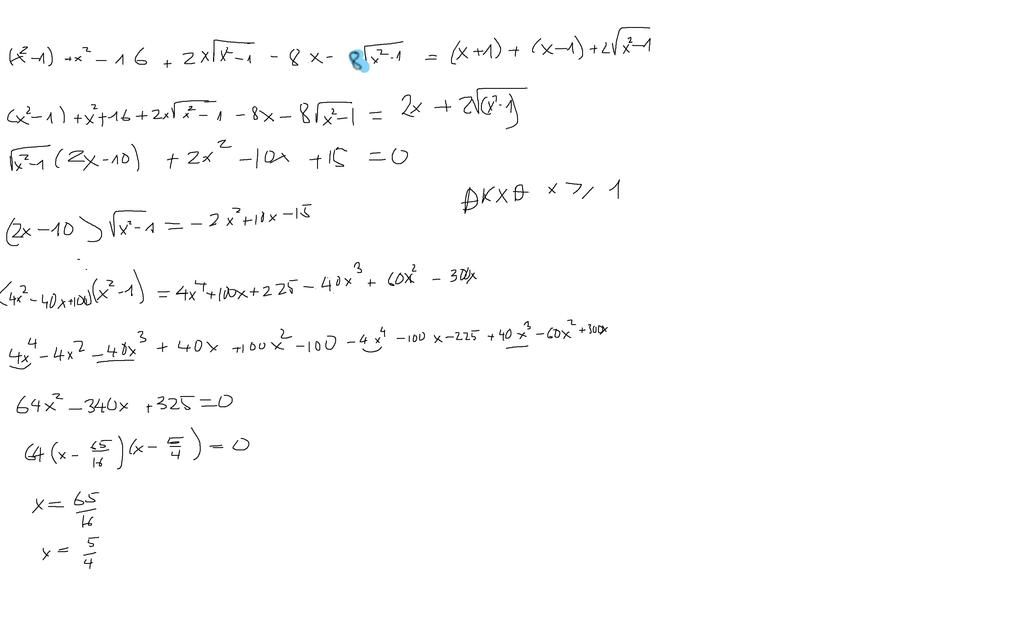 (x²-1) +x² - 16 + 2x√(x²-1) - 8x - 8√(x²-1) = (x+1) + (x-1) + 2√(x²-1)
(x²-1) + x² + 16 + 2x√(x²-1) - 8x - 8√(x²-1) = 2x + 2√(x²-1)
√(x²-1) (2x-10) + 2x² - 10x + 15 = 0
x ≥ 1
(2x-10) √(x²-1) = -2x²+10x-15
(4x²-40x+100)(x²-1) = 4x⁴+100x+225-40x³+60x²-300x
4x⁴-4x²-40x³+40x+100x²-100-4x⁴-100x-225+40x³-60x²+300x
64x²-340x+325=0
64(x-65/16)(x-5/4)=0
x=65/16
x=5/4